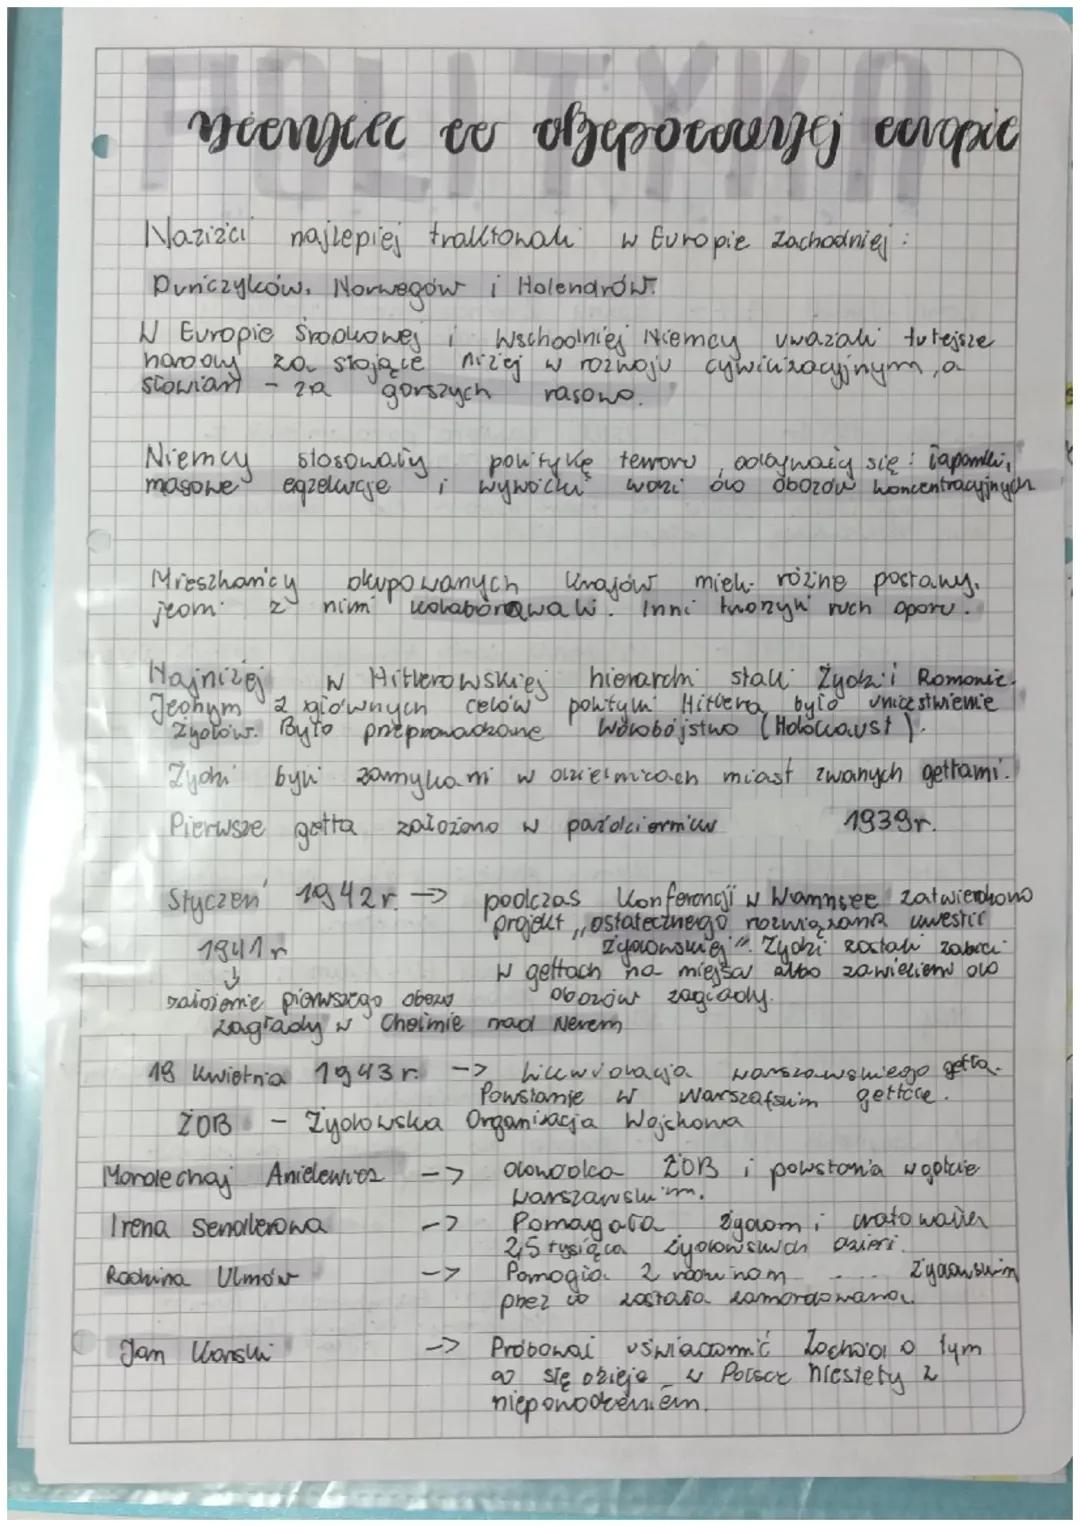 POLITYKA
niemiec w okupowanej europie
Naziści najlepiej traktowali w Europie Zachodniej:
Duńczyków, Norwegów i Holendrów.
W Europie Środkowej i Wschodniej Niemcy uważali tutejsze
narody za stojące niżej w rozwoju cywilizacyjnym, a
słowian - za gorszych rasowo.
Niemcy stosowały politykę terroru, odbywały się: łapanki,
masowe egzekucje i wywózki ludzi do obozów koncentracyjnych
Mieszkańcy okupowanych krajów mieli różne postawy,
jedni z nimi kolaborowali. Inni tworzyli ruch oporu.
Najniżej w Hitlerowskiej hierarchi stali Żydzi i Romowie.
Jednym z głównych celów polityki Hitlera było unicestwienie
Żydów. Było przeprowadzone ludobójstwo (Holokaust).
Żydzi byli zamykani w dzielnicach miast zwanych gettami.
Pierwsze getta założono w październiku 1939r.
Styczeń 1942r. -> podczas Konferencji w Wannsee zatwierdzono
projekt „ostatecznego rozwiązania kwestii
1941r żydowskiej". Żydzi zostali zabici
w gettach na miejscu albo zawiezieni do
założenie pierwszego obozu obozów zagłady.
zagłady w Chełmie nad Nerem
19 kwietnia 1943r. -> Likwidacja warszawskiego getta.
Powstanie w gettcie.
ŻOB - Żydowska Organizacja Wojskowa
Mordechaj Anielewicz -> dowódca ŻOB i powstania w getcie
warszawskim.
Irena Sendlerowa -> Pomagała żydom i uratowała
2,5 tysiąca żydowskich dzieci.
Rodzina Ulmów -> Pomogła 2 rodzinom żydowskim
przez co została zamordowana.
Jan Karski -> Próbował uświadomić Zachód o tym
co się dzieje w Polsce niestety z
niepowodzeniem.